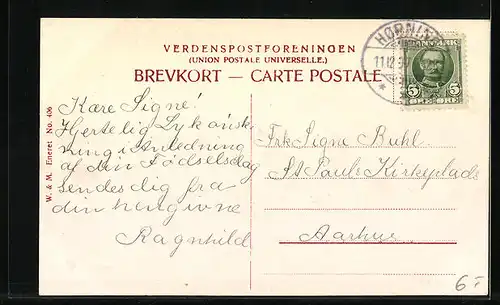 VERDENSPOSTFORENINGEN
(UNION POSTALE UNIVERSELLE.)
BREVKORT — CARTE POSTALE
HØRNING
11.12
DANMARK
5 5
ØRE ØRE
W. & M. Eneret No. 406
Kære Signe!
Hjertelig Lykønsk
ning i Anledning
af din Fødselsdag
sendes dig fra
din hengivne
Ragnhild
Frk Signe Buhl.
St Pauls Kirkeplads
Aarhus
6-